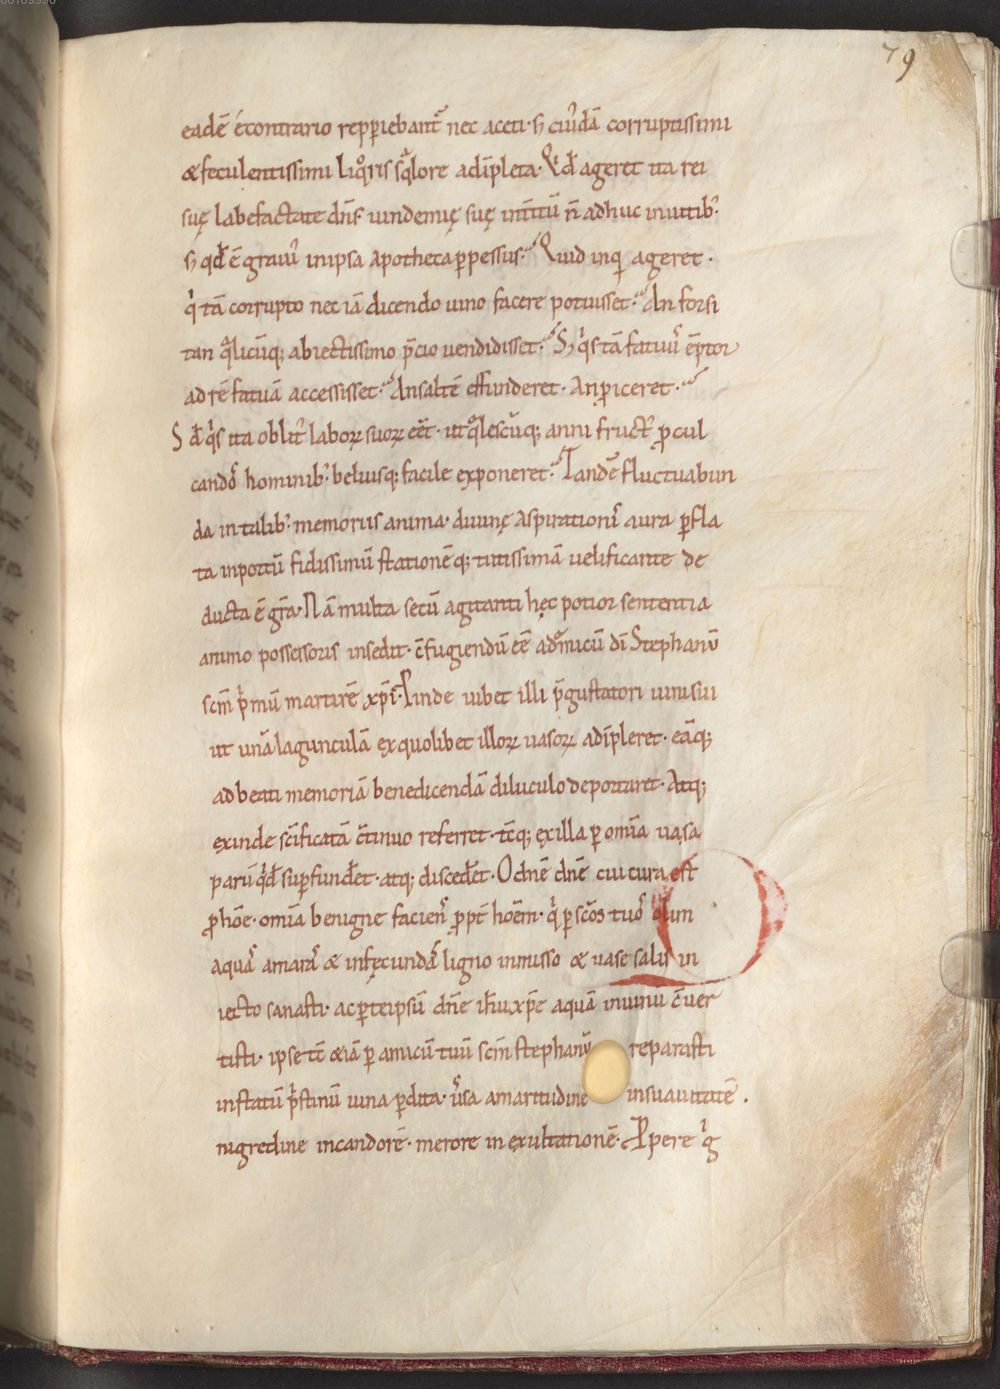 79
eadē écontrario repp̱iebant᷑ nec aceti· s̄ cui᷒dā corruptissimi
& feculentissimi liqͦris sqͣlore adīpleta· Qͥd ageret ita rei
suę labefactate dn̄s· uindemię suę in n̄ adhuc inuitib᷒·
s̄ qd̄ ē graui᷒ in ipsa apotheca p̱pessus· Quid inqͥ ageret·
qͥ tā corrupto nec iā dicendo uino facere potuisset· An forsi
tan qͣlicūq; abiectissimo p̄cio uendidisset· S; qͥs tā fatuu᷒ ēptor
ad rē fatuā accessisset· An saltē effunderet· An ꝓiceret·
Sd̄ qͥs ita oblit᷒ laboꝝ suoꝝ eēt· ut qͣlescūq; anni fruct᷒ ꝓcul
candos hominib᷒· beluisq; facile exponeret· Tandē fluctuabun
da in talib᷒· memoriis anima· diuinę aspirationis aura ꝑfla
ta in portū fidissimū stationēq; tutissimā uelificante de
ducta ē gr̄a· Nā multa secū agitanti hęc potior sententia
animo possessoris insedit· c̄fugiendū eē ad amicū dī Stephanū
scm̄ pͥmū martirē xp̄i· Proinde iubet illi p̄gustatori uini sui
ut unā lagunculā ex quolibet illoꝝ uasoꝝ adīpleret· eāq;
ad beati memoriā benedicendā diluculo deportaret· Atq;
exinde scīficatā c̄tinuo referret· tc̄q; ex illa ꝑ om̄ia uasa
parū qͥd suꝑfundet· atq; discedet· O dn̄e dn̄e cui cura est
ꝓ hōe· om̄ia benigne faciens ꝓpt̄ hoēm· qͥ ꝑ scōs tuos olim
aquas amaras & infęcundas ligno inmisso & uase salis in
iecto sanasti· ac ꝑ teipsū dn̄e ih̄u xp̄e aquā in uinū c̄uer
tisti· ipse tc̄ &iā ꝑ amicū tuū scm̄ stephanū reparasti
in statū pͥstinū uina ꝑdita· ūsa amaritudine in suauitatē·
nigredine in candorē· merore in exultationē· Ꝓpere gͥ